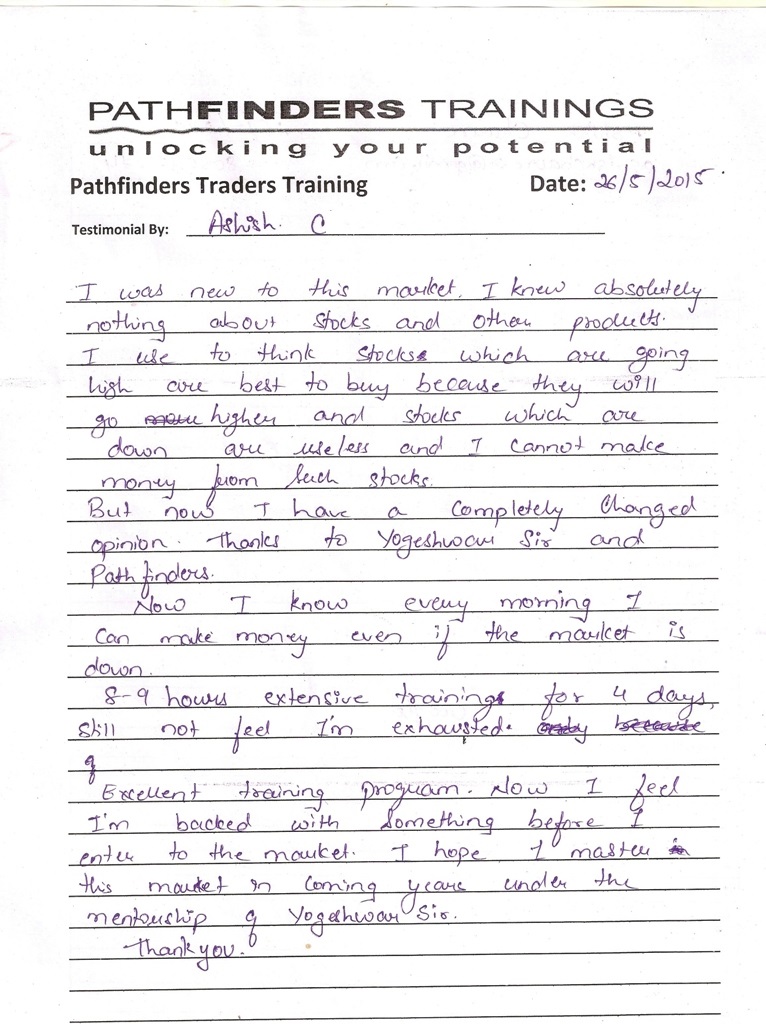 PATHFINDERS TRAININGS
unlocking your potential
Pathfinders Traders Training Date: 26/5/2015
Testimonial By: Ashish. C
I was new to this market. I knew absolutely
nothing about stocks and other products.
I use to think stocks which are going
high are best to buy because they will
go higher and stocks which are
down are useless and I cannot make
money from such stocks.
But now I have a completely changed
opinion. Thanks to Yogeshwar Sir and
Pathfinders.
Now I know every morning I
can make money even if the market is
down.
8-9 hours extensive training for 4 days,
still not feel I'm exhausted.
Excellent training program. Now I feel
I'm backed with something before I
enter to the market. I hope I master
this market in coming years under the
mentorship of Yogeshwar Sir.
Thank you.